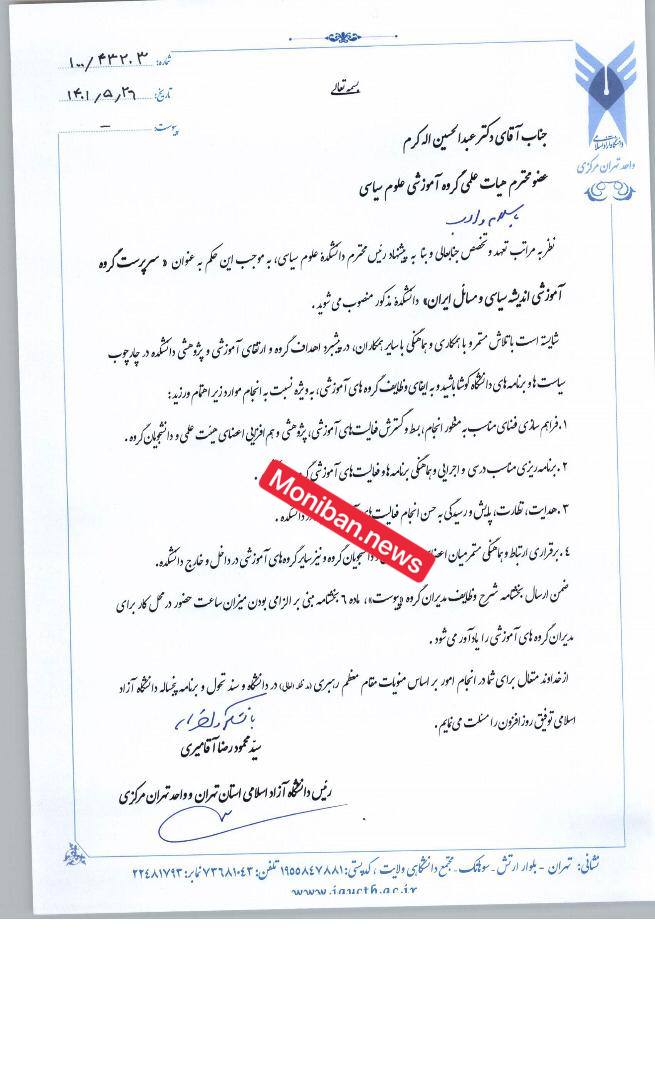 بسمه تعالی
شماره: ۱۰۰/۴۳۲۰۳
تاریخ: ۱۴۰۱/۵/۲۶
پیوست: –
دانشگاه آزاد اسلامی
واحد تهران مرکزی
جناب آقای دکتر عبدالحسین اله کرم
عضو محترم هیات علمی گروه آموزشی علوم سیاسی
با سلام و ادب
نظر به مراتب تعهد و تخصص جنابعالی و بنا به پیشنهاد رئیس محترم دانشکدۀ علوم سیاسی، به موجب این حکم به عنوان « سرپرست گروه
آموزشی اندیشه سیاسی و مسائل ایران» دانشکدۀ مذکور منصوب می شوید .
شایسته است با تلاش مستمر و با همکاری و هماهنگی با سایر همکاران، در پیشبرد اهداف گروه و ارتقای آموزشی و پژوهشی دانشکده در چارچوب
سیاست ها و برنامه های دانشگاه کوشا باشید و به ایفای وظایف گروه های آموزشی، به ویژه نسبت به انجام موارد زیر اهتمام ورزید:
۱. فراهم سازی فضای مناسب به منظور انجام، بسط و گسترش فعالیت های آموزشی، پژوهشی و هم افزایی اعضای هیئت علمی و دانشجویان گروه .
۲. برنامه ریزی مناسب درسی و اجرایی و هماهنگی برنامه ها و فعالیت های آموزشی
۳. هدایت، نظارت، پایش و رسیدگی به حسن انجام فعالیت های دانشکده .
۴. برقراری ارتباط و هماهنگی مستمر میان اعضای دانشجویان گروه و نیز سایر گروه های آموزشی در داخل و خارج دانشکده.
Moniban.news
ضمن ارسال بخشنامه شرح وظایف مدیران گروه «پیوست»، ماده ۶ بخشنامه مبنی بر الزامی بودن میزان ساعت حضور در محل کار برای
مدیران گروه های آموزشی را یادآور می شود .
از خداوند متعال برای شما در انجام امور بر اساس منویات مقام معظم رهبری (مد ظله العالی) در دانشگاه و سند تحول و برنامه پنجساله دانشگاه آزاد
اسلامی توفیق روز افزون را مسئلت می نمایم .
سیّد محمود رضا آقامیری
رئیس دانشگاه آزاد اسلامی استان تهران و واحد تهران مرکزی
نشانی: تهران - بلوار ارتش - سوهانک - مجتمع دانشگاهی ولایت ، کدپستی: ۱۹۵۵۸۴۷۸۸۱ تلفن: ۷۳۶۸۱۰۴۳ نمابر: ۲۲۴۸۱۷۹۳
www.iauctb.ac.ir